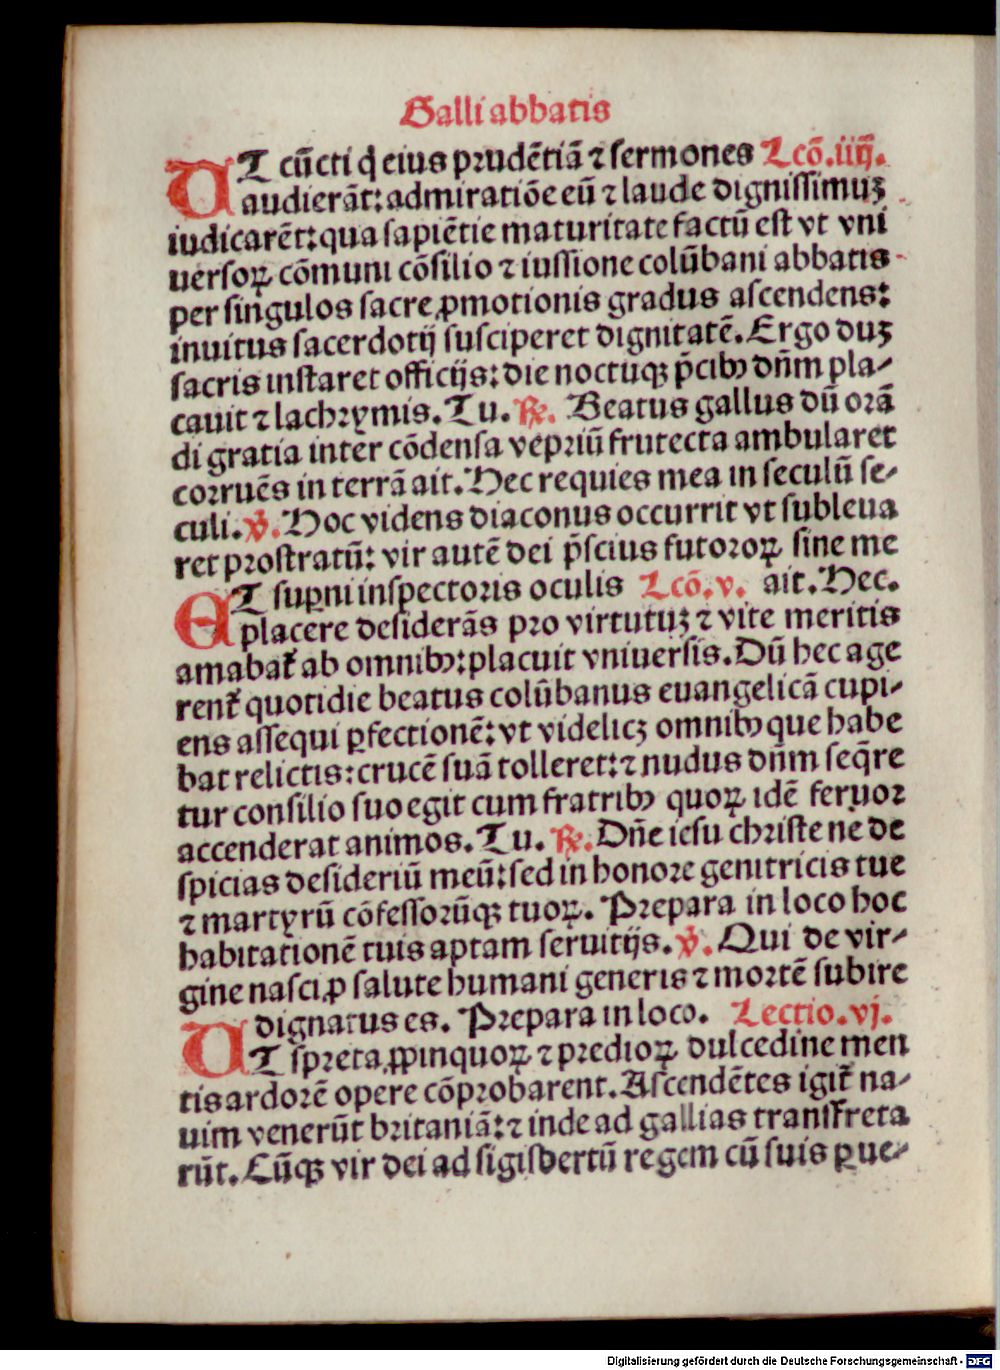 Galli abbatis
VT cūcti q̇ eius prudētiā ⁊ sermones Lcō.iiij.
audierāt: admiratiōe eū ⁊ laude dignissimuꝫ
iudicarēt: qua sapiētie maturitate factū est vt vni
uersoꝝ cōmuni cōsilio ⁊ iussione colūbani abbatis
per singulos sacre ꝓmotionis gradus ascendens:
inuitus sacerdotij susciperet dignitatē. Ergo duꝫ
sacris instaret officijs: die noctuqꝫ p̄cibꝰ dn̄m pla-
cauit ⁊ lachrymis. Tu. ℟. Beatus gallus dū orā
di gratia inter cōdensa vepriū frutecta ambularet
corruēs in terrā ait. Hec requies mea in seculū se-
culi. ℣. Hoc videns diaconus occurrit vt subleua
ret prostratū: vir autē dei p̄scius futororꝝ sine me
ET suꝑni inspectoris oculis Lcō.v. ait. Hec.
placere desiderās pro virtutuꝫ ⁊ vite meritis
amabat᷑ ab omnibꝰ: placuit vniuersis. Dū hec age
rent᷑ quotidie beatus colūbanus euangelicā cupi-
ens assequi ꝑfectionē: vt videlicꝫ omnibꝰ que habe
bat relictis: crucē suā tolleret: ⁊ nudus dn̄m seq̄re
tur consilio suo egit cum fratribꝰ quoꝝ idē feruor
accenderat animos. Tu. ℟. Dn̄e iesu christe ne de
spicias desideriū meū: sed in honore genitricis tue
⁊ martyrū cōfessorūqꝫ tuoꝝ. Prepara in loco hoc
habitationē tuis aptam seruitijs. ℣. Qui de vir-
gine nasci ꝓ salute humani generis ⁊ mortē subire
dignatus es. Prepara in loco. Lectio.vj.
VT spreta ꝓpinquoꝝ ⁊ predioꝝ dulcedine men
tis ardorē opere cōprobarent. Ascendētes igit᷑ na-
uim venerūt britaniā: ⁊ inde ad gallias transfreta
rūt. Cūqꝫ vir dei ad sigisbertū regem cū suis ꝑue-
Digitalisierung gefördert durch die Deutsche Forschungsgemeinschaft - DFG